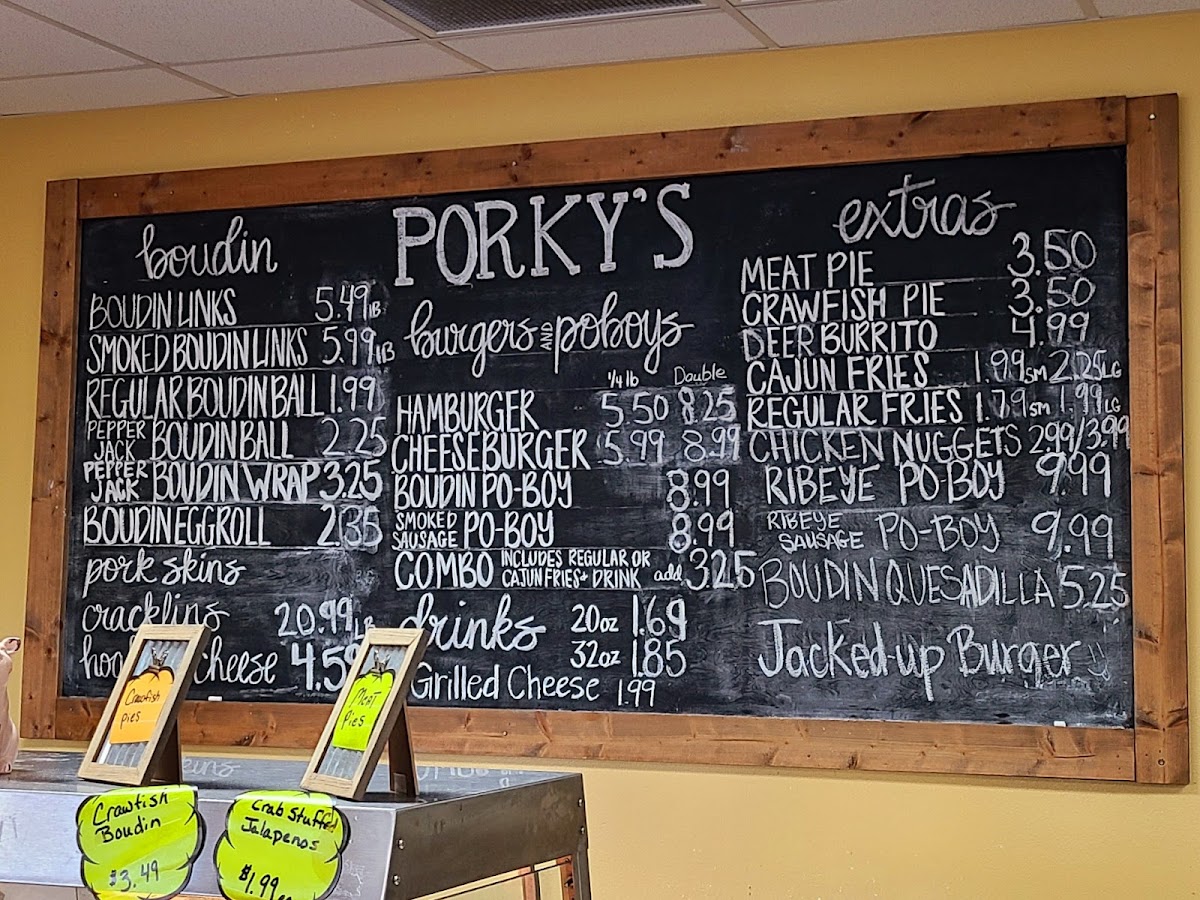 PORKY'S
boudin
BOUDIN LINKS 5.49 LB
SMOKED BOUDIN LINKS 5.99 LB
REGULAR BOUDIN BALL 1.99
PEPPER JACK BOUDIN BALL 2.25
PEPPER JACK BOUDIN WRAP 3.25
BOUDIN EGGROLL 2.35
pork skins
cracklins 20.99 LB
cheese
burgers AND poboys
1/4 lb Double
HAMBURGER 5.50 8.25
CHEESEBURGER 5.99 8.99
BOUDIN PO-BOY 8.99
SMOKED SAUSAGE PO-BOY 8.99
COMBO INCLUDES REGULAR OR CAJUN FRIES + DRINK add 3.25
drinks 20oz 1.69
32oz 1.85
Grilled Cheese 1.99
extras
MEAT PIE 3.50
CRAWFISH PIE 3.50
DEER BURRITO 4.99
CAJUN FRIES 1.99 SM 2.25 LG
REGULAR FRIES 1.79 SM 1.99 LG
CHICKEN NUGGETS 2.99/3.99
RIBEYE PO-BOY 9.99
RIBEYE SAUSAGE PO-BOY 9.99
BOUDIN QUESADILLA 5.25
Jacked-up Burger
Crawfish
pies
MEAT
Pies
Crawfish
Boudin
$3.49
Crab Stuffed
Jalapenos
$1.99